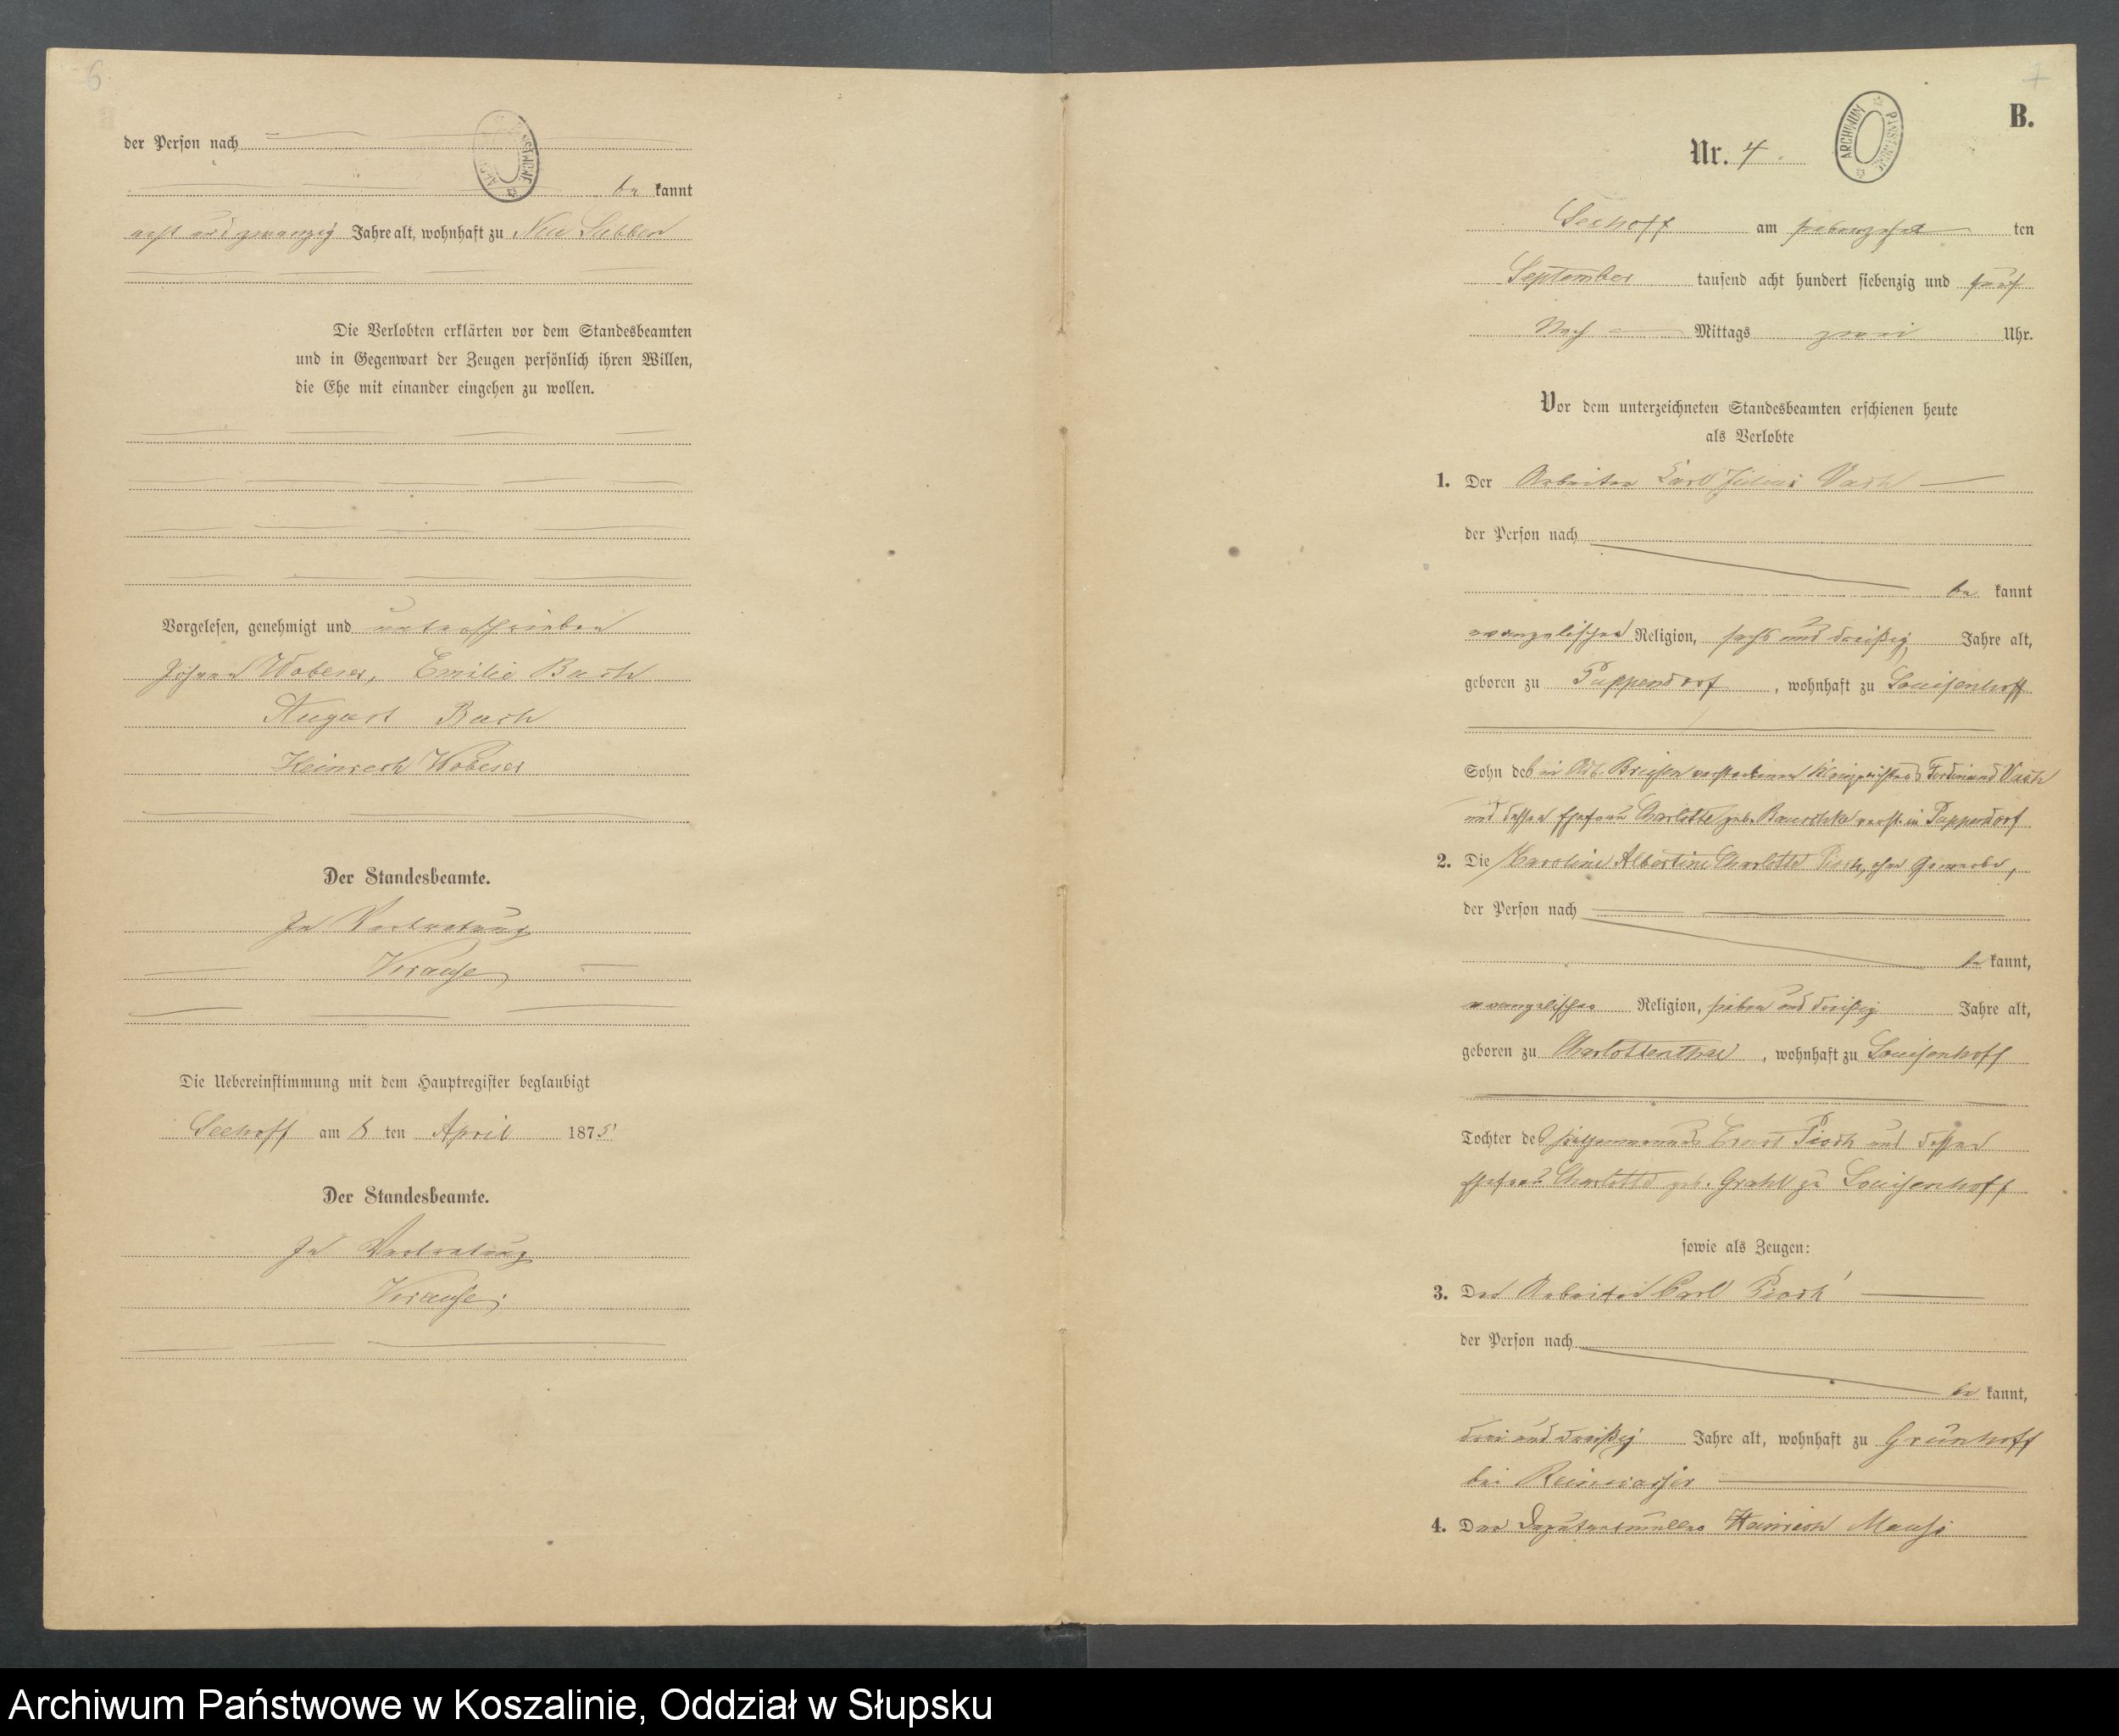 6
der Person nach
be kannt
acht und zwanzig Jahre alt, wohnhaft zu Neu Lubben
Die Verlobten erklärten vor dem Standesbeamten
und in Gegenwart der Zeugen persönlich ihren Willen,
die Ehe mit einander eingehen zu wollen.
Vorgelesen, genehmigt und unterschrieben
Johann Wobeser, Emilie Bach
August Bach
Heinrich Wobeser
Der Standesbeamte.
In Vertretung
Krause
Die Uebereinstimmung mit dem Hauptregister beglaubigt
Seehoff am 8 ten April 1875
Der Standesbeamte.
In Vertretung
Krause.
7
B.
ARCHIWUM PAŃSTWOWE
Nr. 4.
Seehoff am siebenzehn ten
September tausend acht hundert siebenzig und fünf
Nach Mittags zwei Uhr.
Vor dem unterzeichneten Standesbeamten erschienen heute
als Verlobte
1. Der Arbeiter Carl Julius Vach
der Person nach
be kannt
evangelischen Religion, sechs und dreißig Jahre alt,
geboren zu Puppendorf, wohnhaft zu Louisenhoff
Sohn des in Alt Briesen verstorbenen Ferdinand Vach
und dessen Ehefrau Charlotte geb. verst. in Puppendorf
2. Die Karoline Albertine Charlotte Pioch, ohne Gewerbe,
der Person nach
be kannt,
evangelischer Religion, sieben und dreißig Jahre alt,
geboren zu Charlottenthal, wohnhaft zu Louisenhoff
Tochter des Ernst Pioch und dessen
Ehefrau Charlotte geb. Grahl zu Louisenhoff
sowie als Zeugen:
3. Der Arbeiter Carl Pioch
der Person nach
be kannt,
drei und dreißig Jahre alt, wohnhaft zu Grünhoff
bei Reinwasser
4. Der Heinrich
Archiwum Państwowe w Koszalinie, Oddział w Słupsku